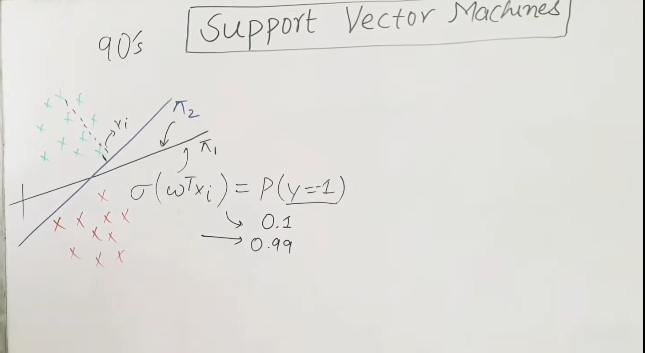 90's
Support Vector Machines
π₂
xi
π₁
σ(ωᵀxᵢ) = P(y=-1)
0.1
0.99